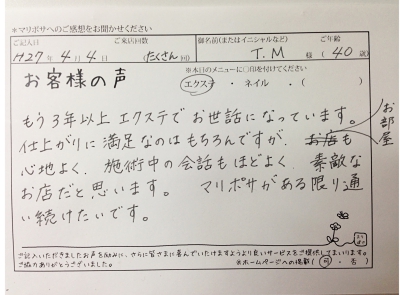 *マリポサへのご感想をお聞かせください
ご記入日 ご来店回数 御名前(またはイニシャルなど) ご年齢
H27年4月4日 (たくさん回) T.M 様 (40歳)
お客様の声
*本日のメニューに○印を付けてください
エクステ ・ ネイル ・ ( )
もう3年以上エクステでお世話になっています。
仕上がりに満足なのはもちろんですが、お店も
お部屋
心地よく、施術中の会話もほどよく、素敵な
お店だと思います。 マリポサがある限り通
い続けたいです。
ご記入いただきましたお声を励みに、さらに皆さまに喜んでいただけますようより良いサービスをご提供してまいります。
ご協力ありがとうございました。 *ホームページへの掲載(可・否)